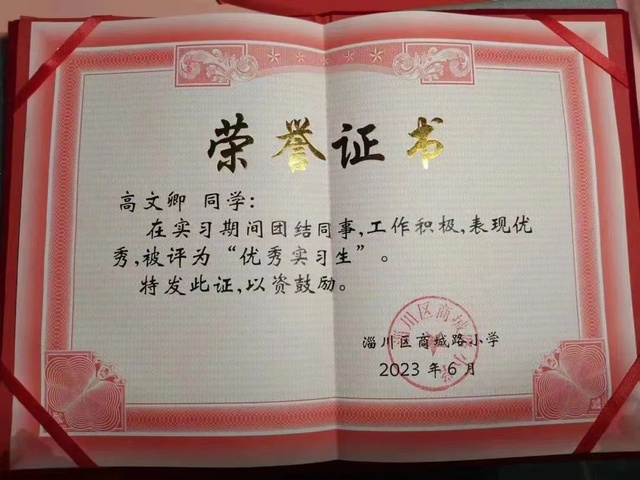 荣誉证书
高文卿 同学:
在实习期间团结同事,工作积极,表现优
秀,被评为“优秀实习生”。
特发此证,以资鼓励。
淄川区商城路小学
2023年6月
淄川区商城路小学